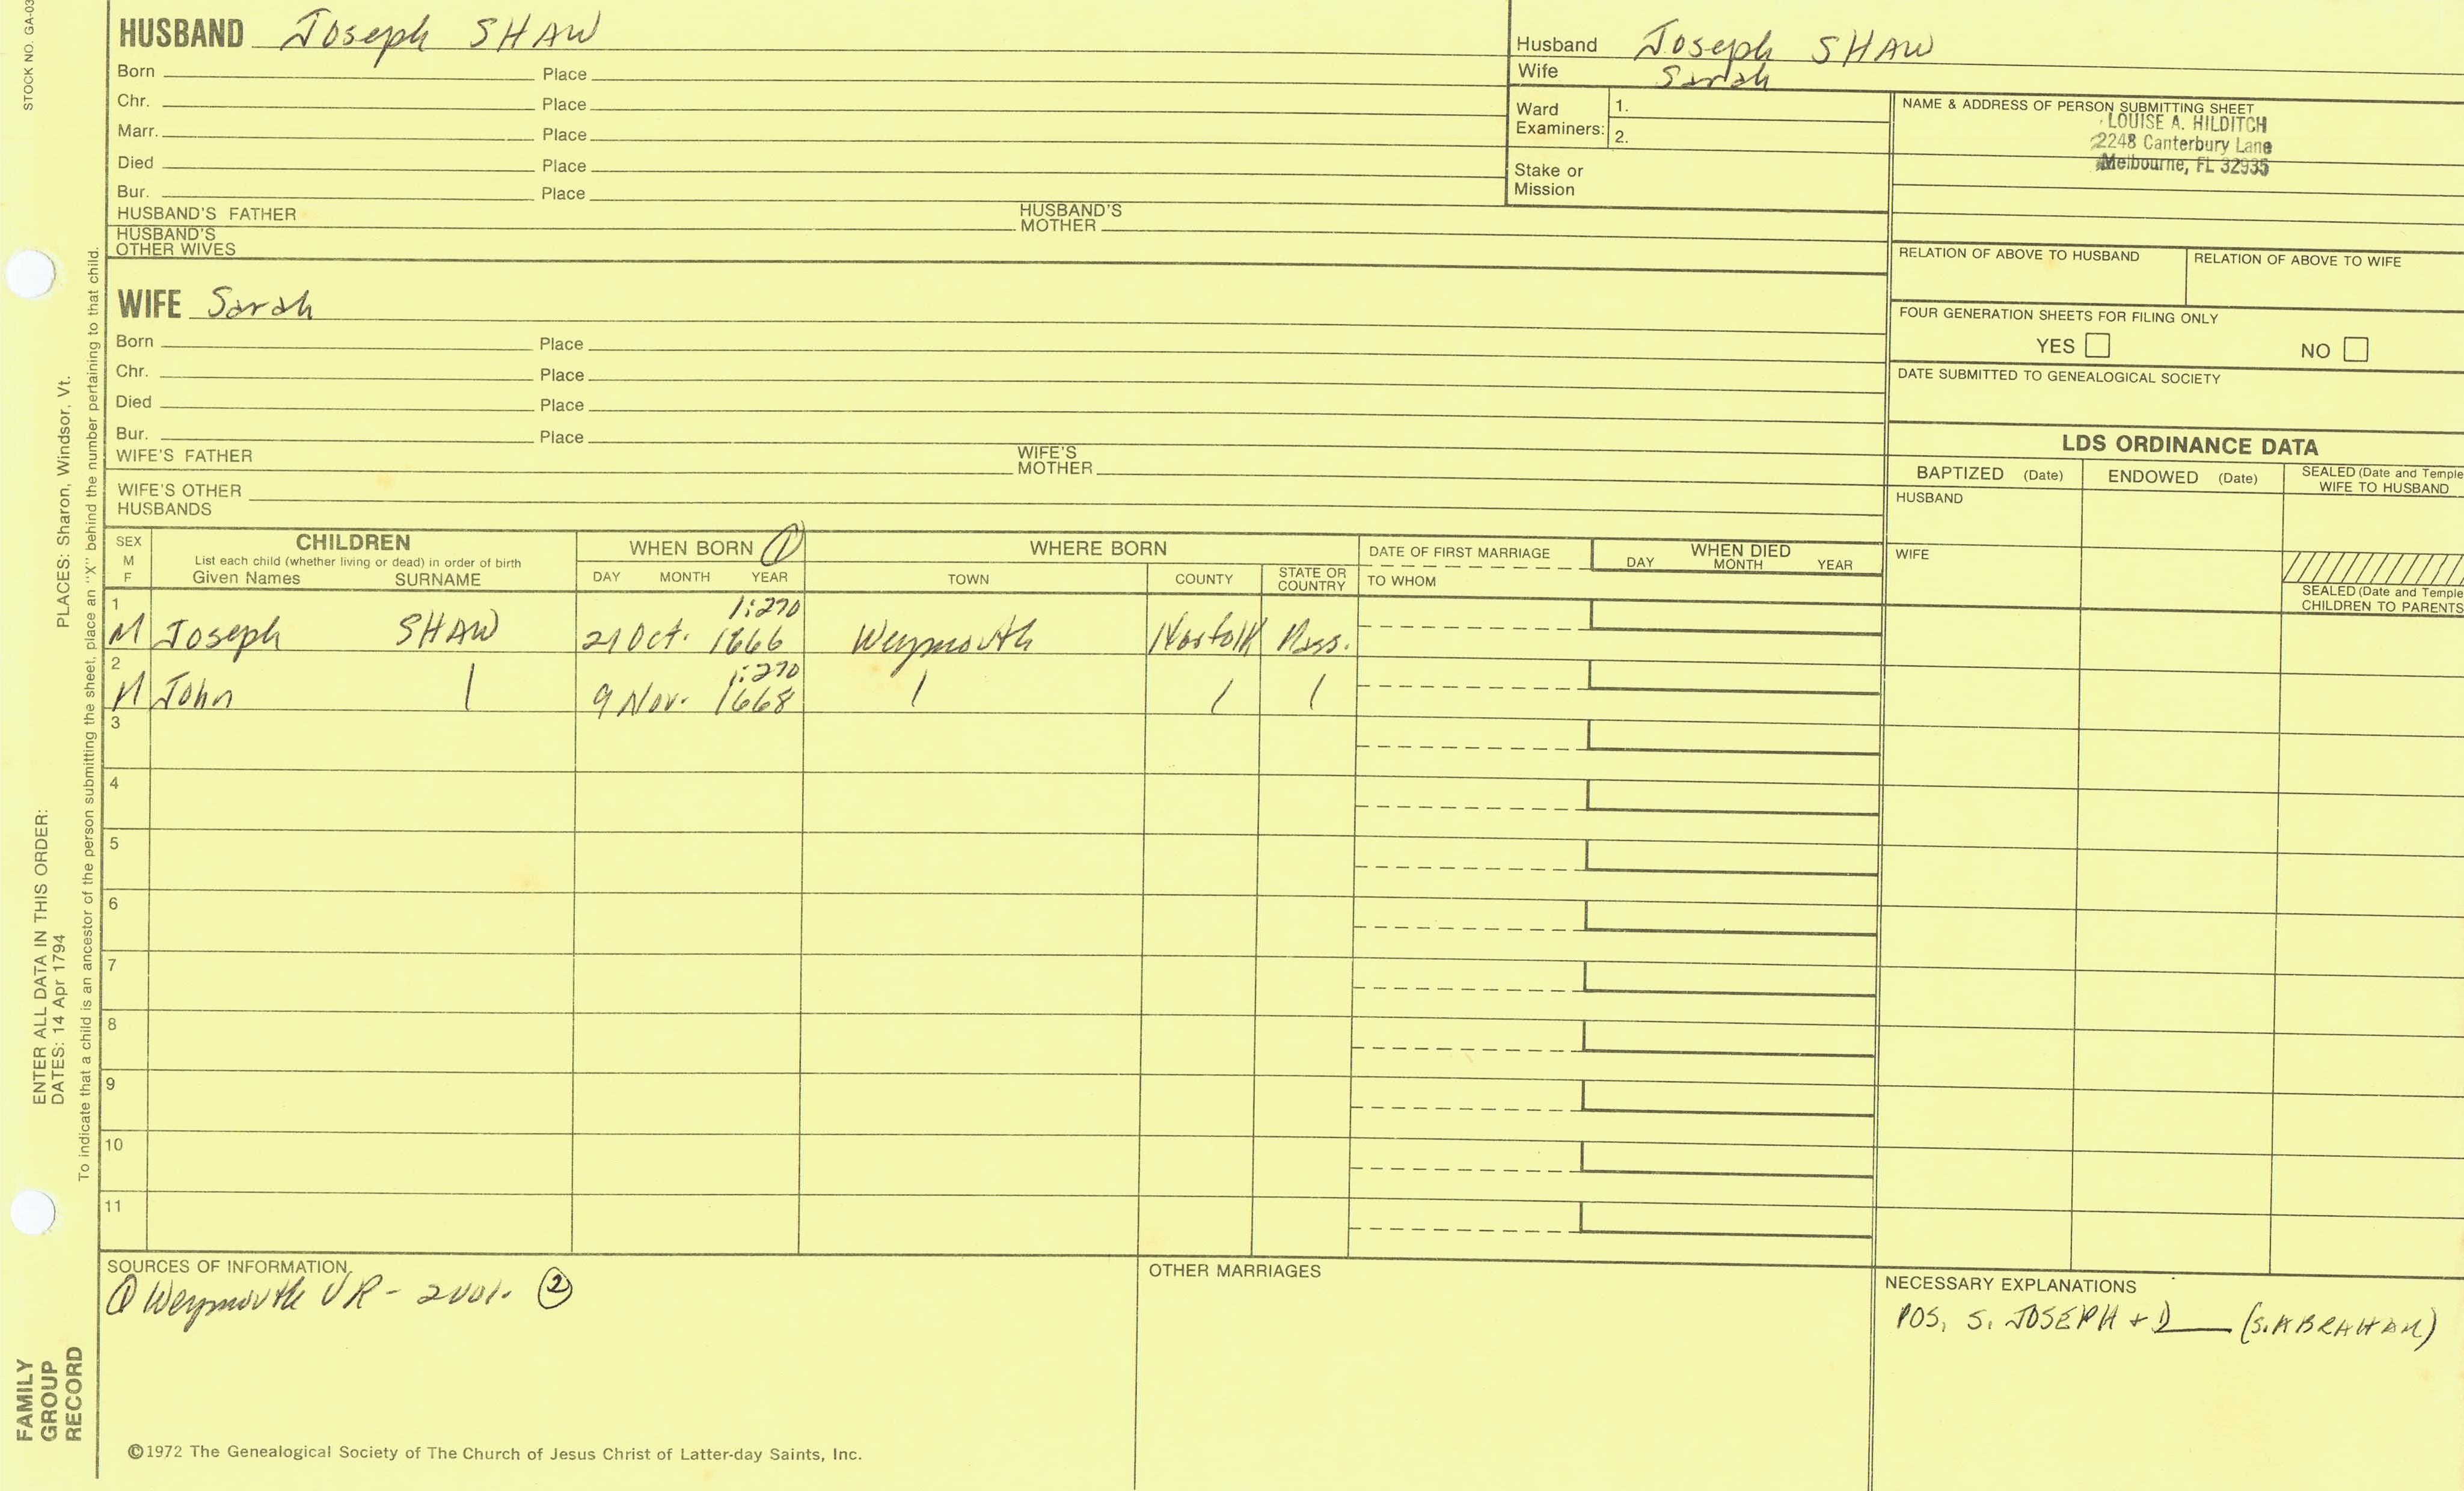 STOCK NO. GA-03
HUSBAND Joseph SHAW
Born Place
Chr. Place
Marr. Place
Died Place
Bur. Place
HUSBAND'S FATHER HUSBAND'S MOTHER
HUSBAND'S OTHER WIVES
Husband Joseph SHAW
Wife Sarah
Ward Examiners: 1.
2.
Stake or Mission
NAME & ADDRESS OF PERSON SUBMITTING SHEET
LOUISE A. HILDITCH
2248 Canterbury Lane
Melbourne, FL 32935
RELATION OF ABOVE TO HUSBAND RELATION OF ABOVE TO WIFE
FOUR GENERATION SHEETS FOR FILING ONLY
YES NO
DATE SUBMITTED TO GENEALOGICAL SOCIETY
WIFE Sarah
Born Place
Chr. Place
Died Place
Bur. Place
WIFE'S FATHER WIFE'S MOTHER
WIFE'S OTHER HUSBANDS
LDS ORDINANCE DATA
BAPTIZED (Date) ENDOWED (Date) SEALED (Date and Temple
WIFE TO HUSBAND
HUSBAND
WIFE
SEALED (Date and Temple
CHILDREN TO PARENTS
SEX M F
CHILDREN
List each child (whether living or dead) in order of birth
Given Names SURNAME
WHEN BORN ①
DAY MONTH YEAR
WHERE BORN
TOWN COUNTY STATE OR COUNTRY
DATE OF FIRST MARRIAGE
TO WHOM
WHEN DIED
DAY MONTH YEAR
1 1:270
M Joseph SHAW 21 Oct. 1666 Weymouth Norfolk Mass.
2 1:270
M John | 9 Nov. 1668 | | |
3
4
5
6
7
8
9
10
11
SOURCES OF INFORMATION
① Weymouth VR - 2 vol. ②
OTHER MARRIAGES
NECESSARY EXPLANATIONS
POS. S. JOSEPH + D___ (S. ABRAHAM)
©1972 The Genealogical Society of The Church of Jesus Christ of Latter-day Saints, Inc.
FAMILY
GROUP
RECORD
ENTER ALL DATA IN THIS ORDER:
DATES: 14 Apr 1794
PLACES: Sharon, Windsor, Vt.
To indicate that a child is an ancestor of the person submitting the sheet, place an "X" behind the number pertaining to that child.